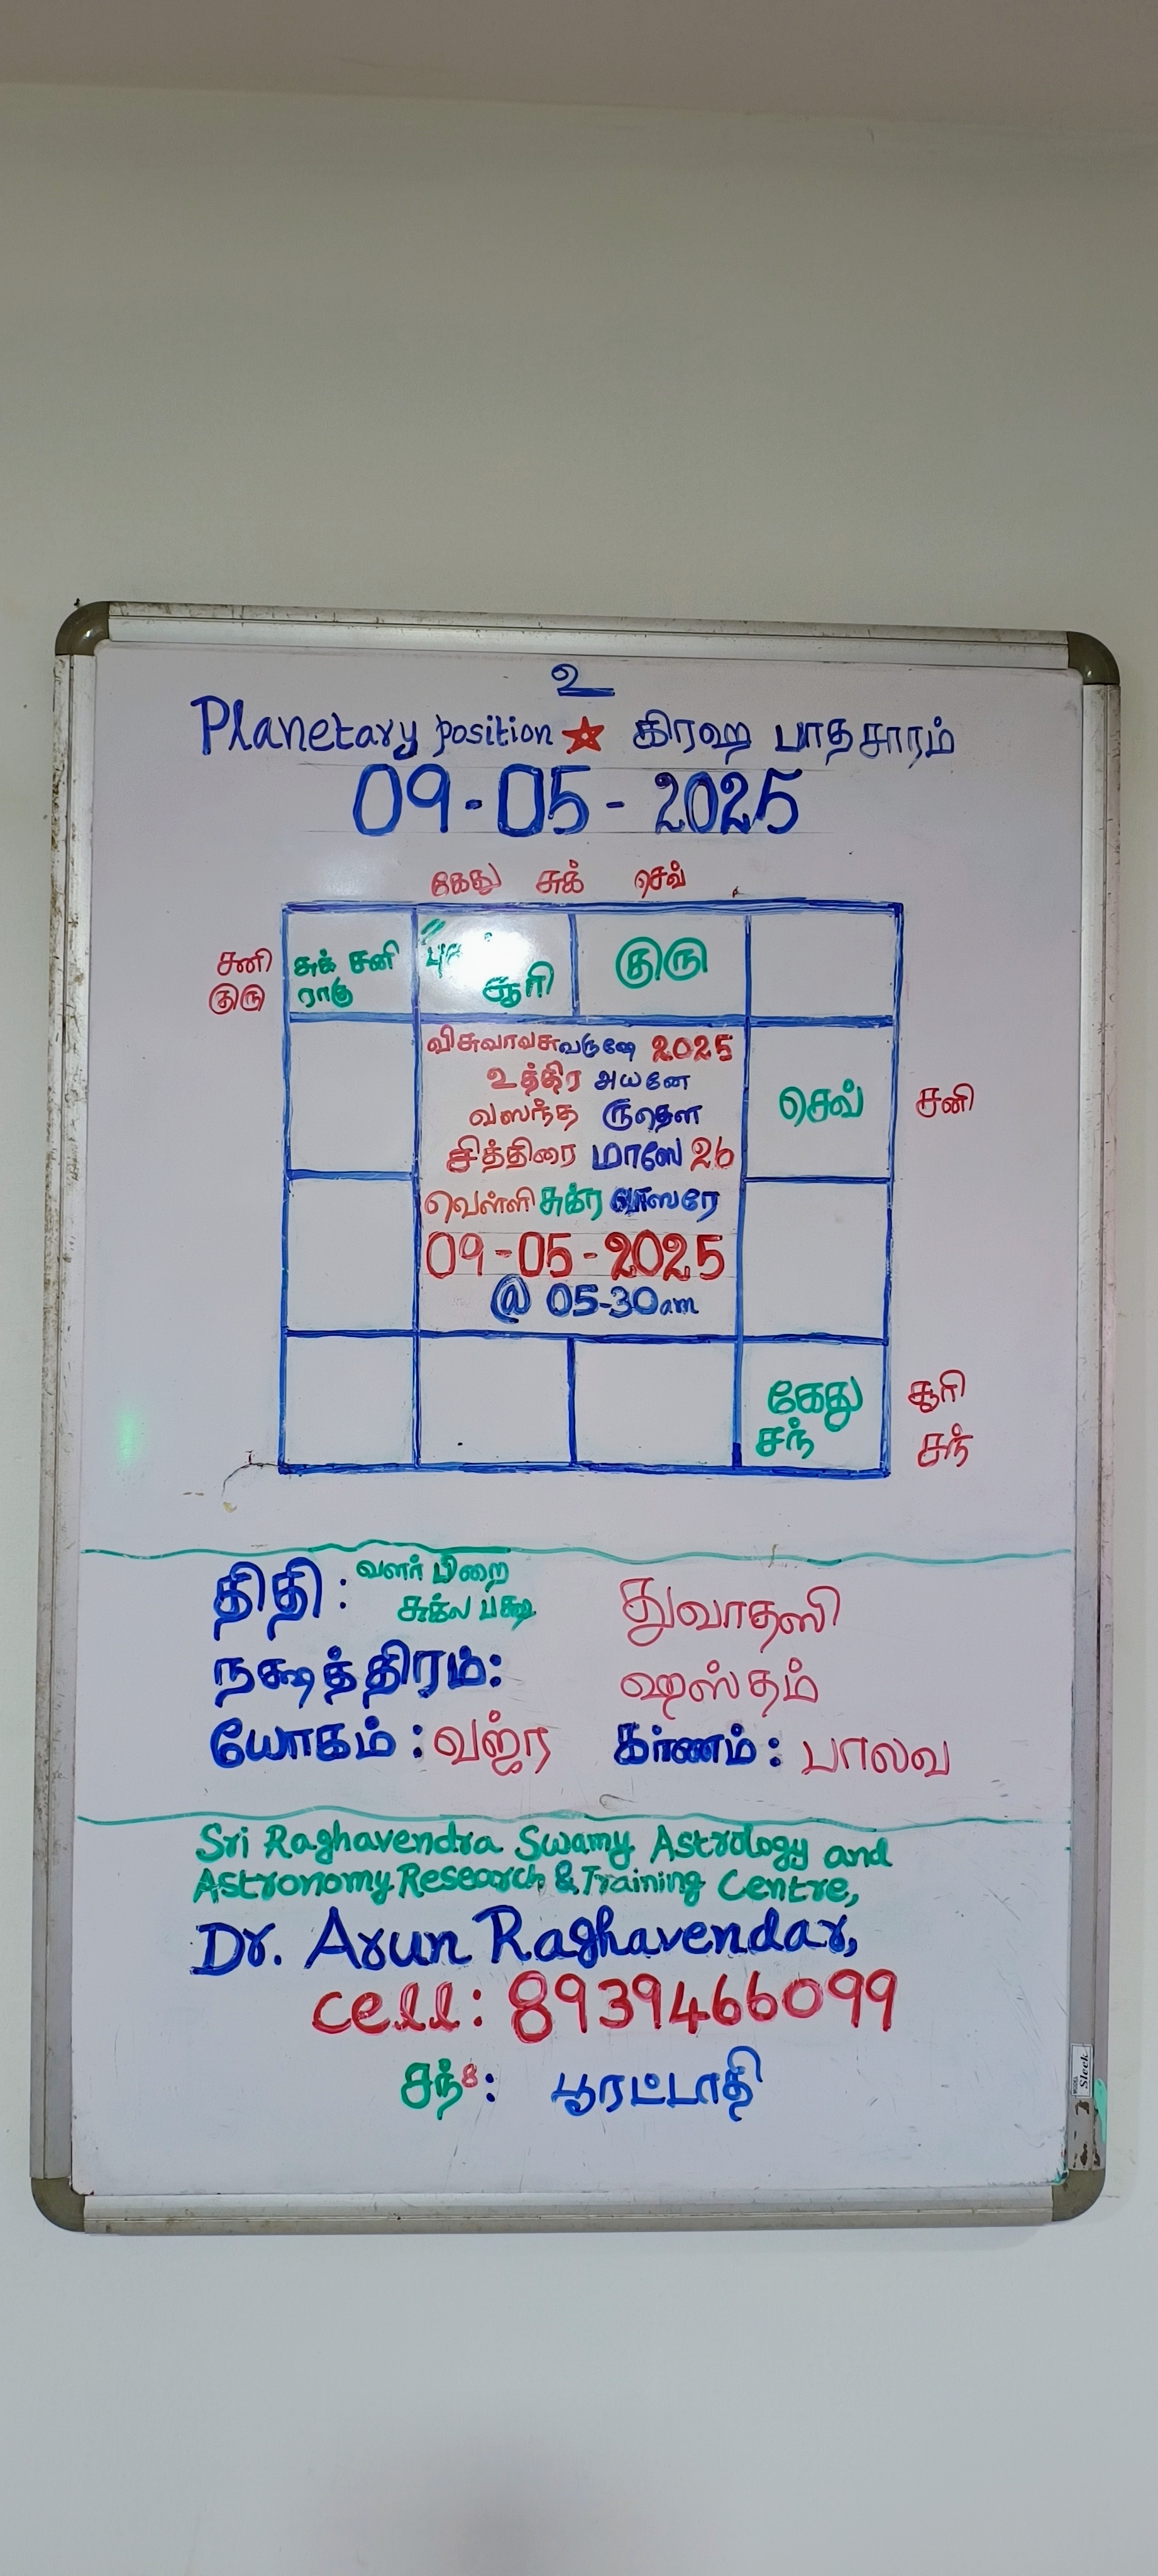 உ
Planetary position ★ கிரஹ பாதசாரம்
09-05-2025
கேது சுக் செவ்
சனி
குரு
சுக் சனி
ராகு
சூரி
குரு
விசுவாவசுவருஷே 2025
உத்திர அயனே
வஸந்த ருதௌ
சித்திரை மாஸே 26
வெள்ளி சுக்ர வாஸரே
09-05-2025
@ 05-30am
செவ்
சனி
கேது
சந்
சூரி
சந்
திதி: வளர் பிறை
சுக்ல பக்ஷ
துவாதஸி
நக்ஷத்திரம்: ஹஸ்தம்
யோகம்: வஜ்ர கர்ணம்: பாலவ
Sri Raghavendra Swamy Astrology and
Astronomy Research & Training Centre,
Dr. Arun Raghavendar,
cell: 8939466099
சந்8: பூரட்டாதி
Sleek